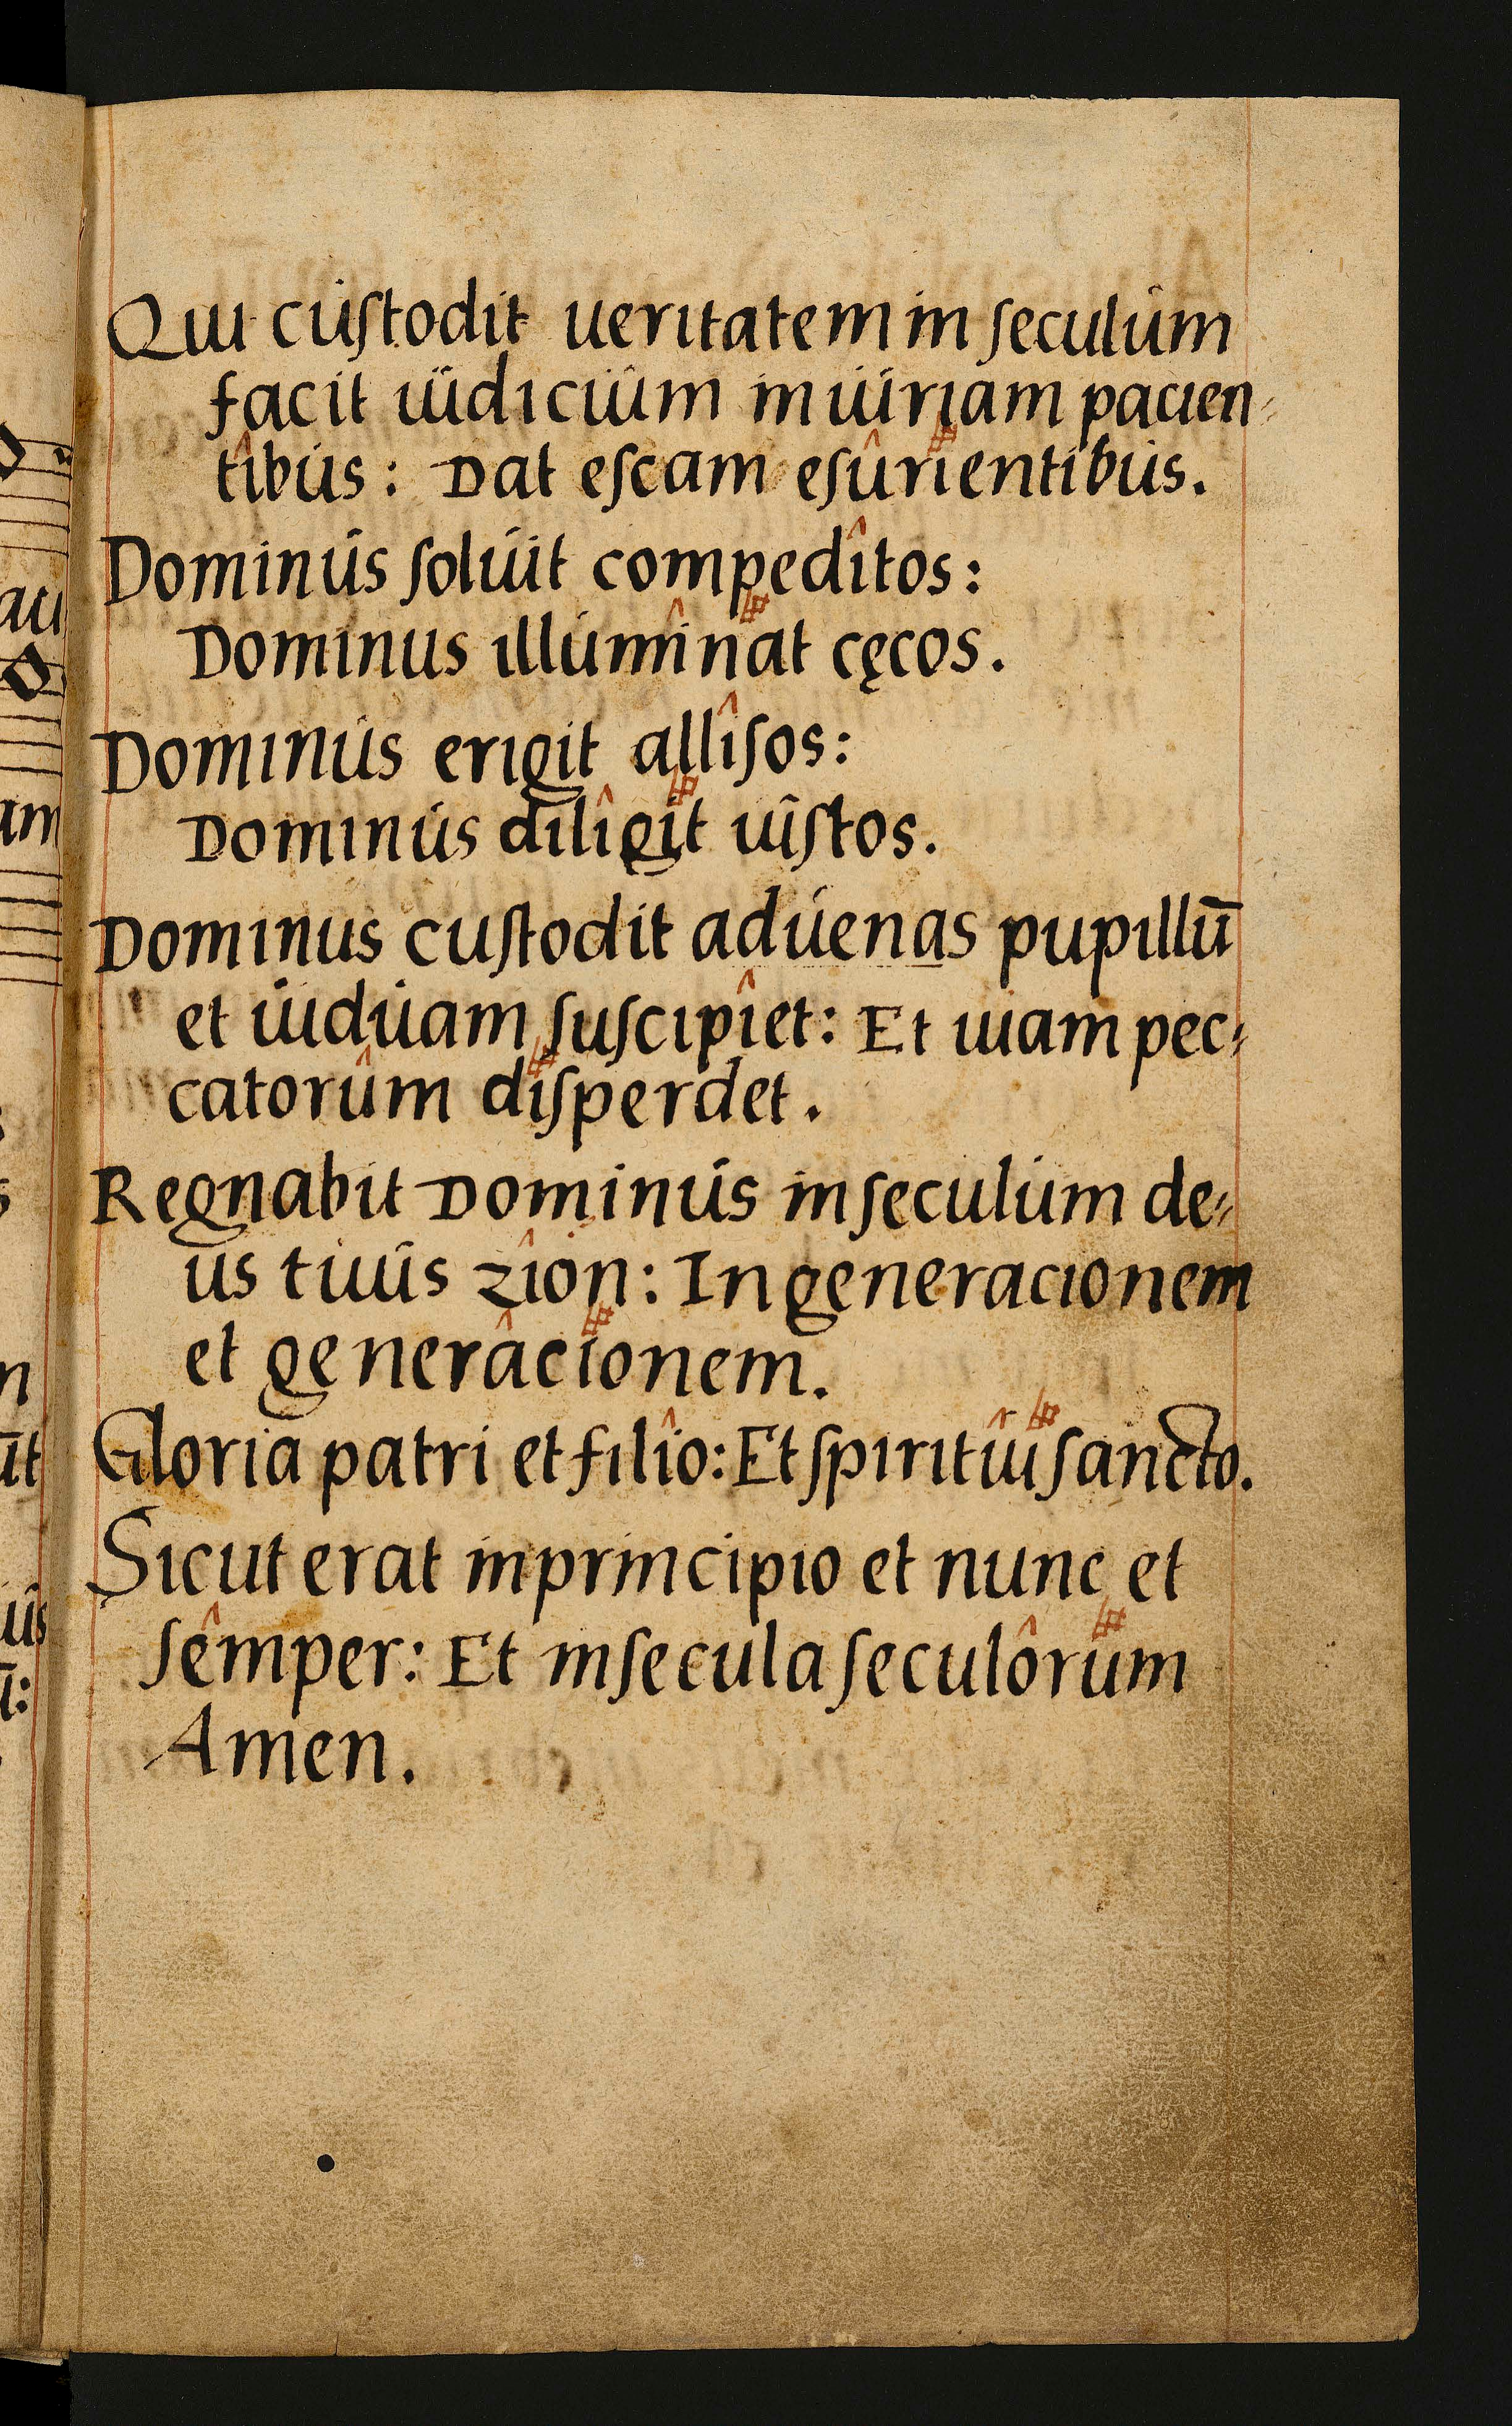 Qui cuſtodit ueritatem in ſeculum
facit iudicium iniuriam pacien⸗
tibus: Dat eſcam eſurientibus.
Dominus ſoluit compeditos:
Dominus illuminat cęcos.
Dominus erigit alliſos:
Dominus diligit iuſtos.
Dominus cuſtodit aduenas pupillū
et uiduam ſuſcipiet: Et uiam pec⸗
catorum diſperdet.
Regnabit Dominus in ſeculum de⸗
us tuus zion: In generacionem
et generacionem.
Gloria patri et filio: Et ſpiritui ſancto.
Sicut erat in principio et nunc et
ſemper: Et in ſecula ſeculorum
Amen.